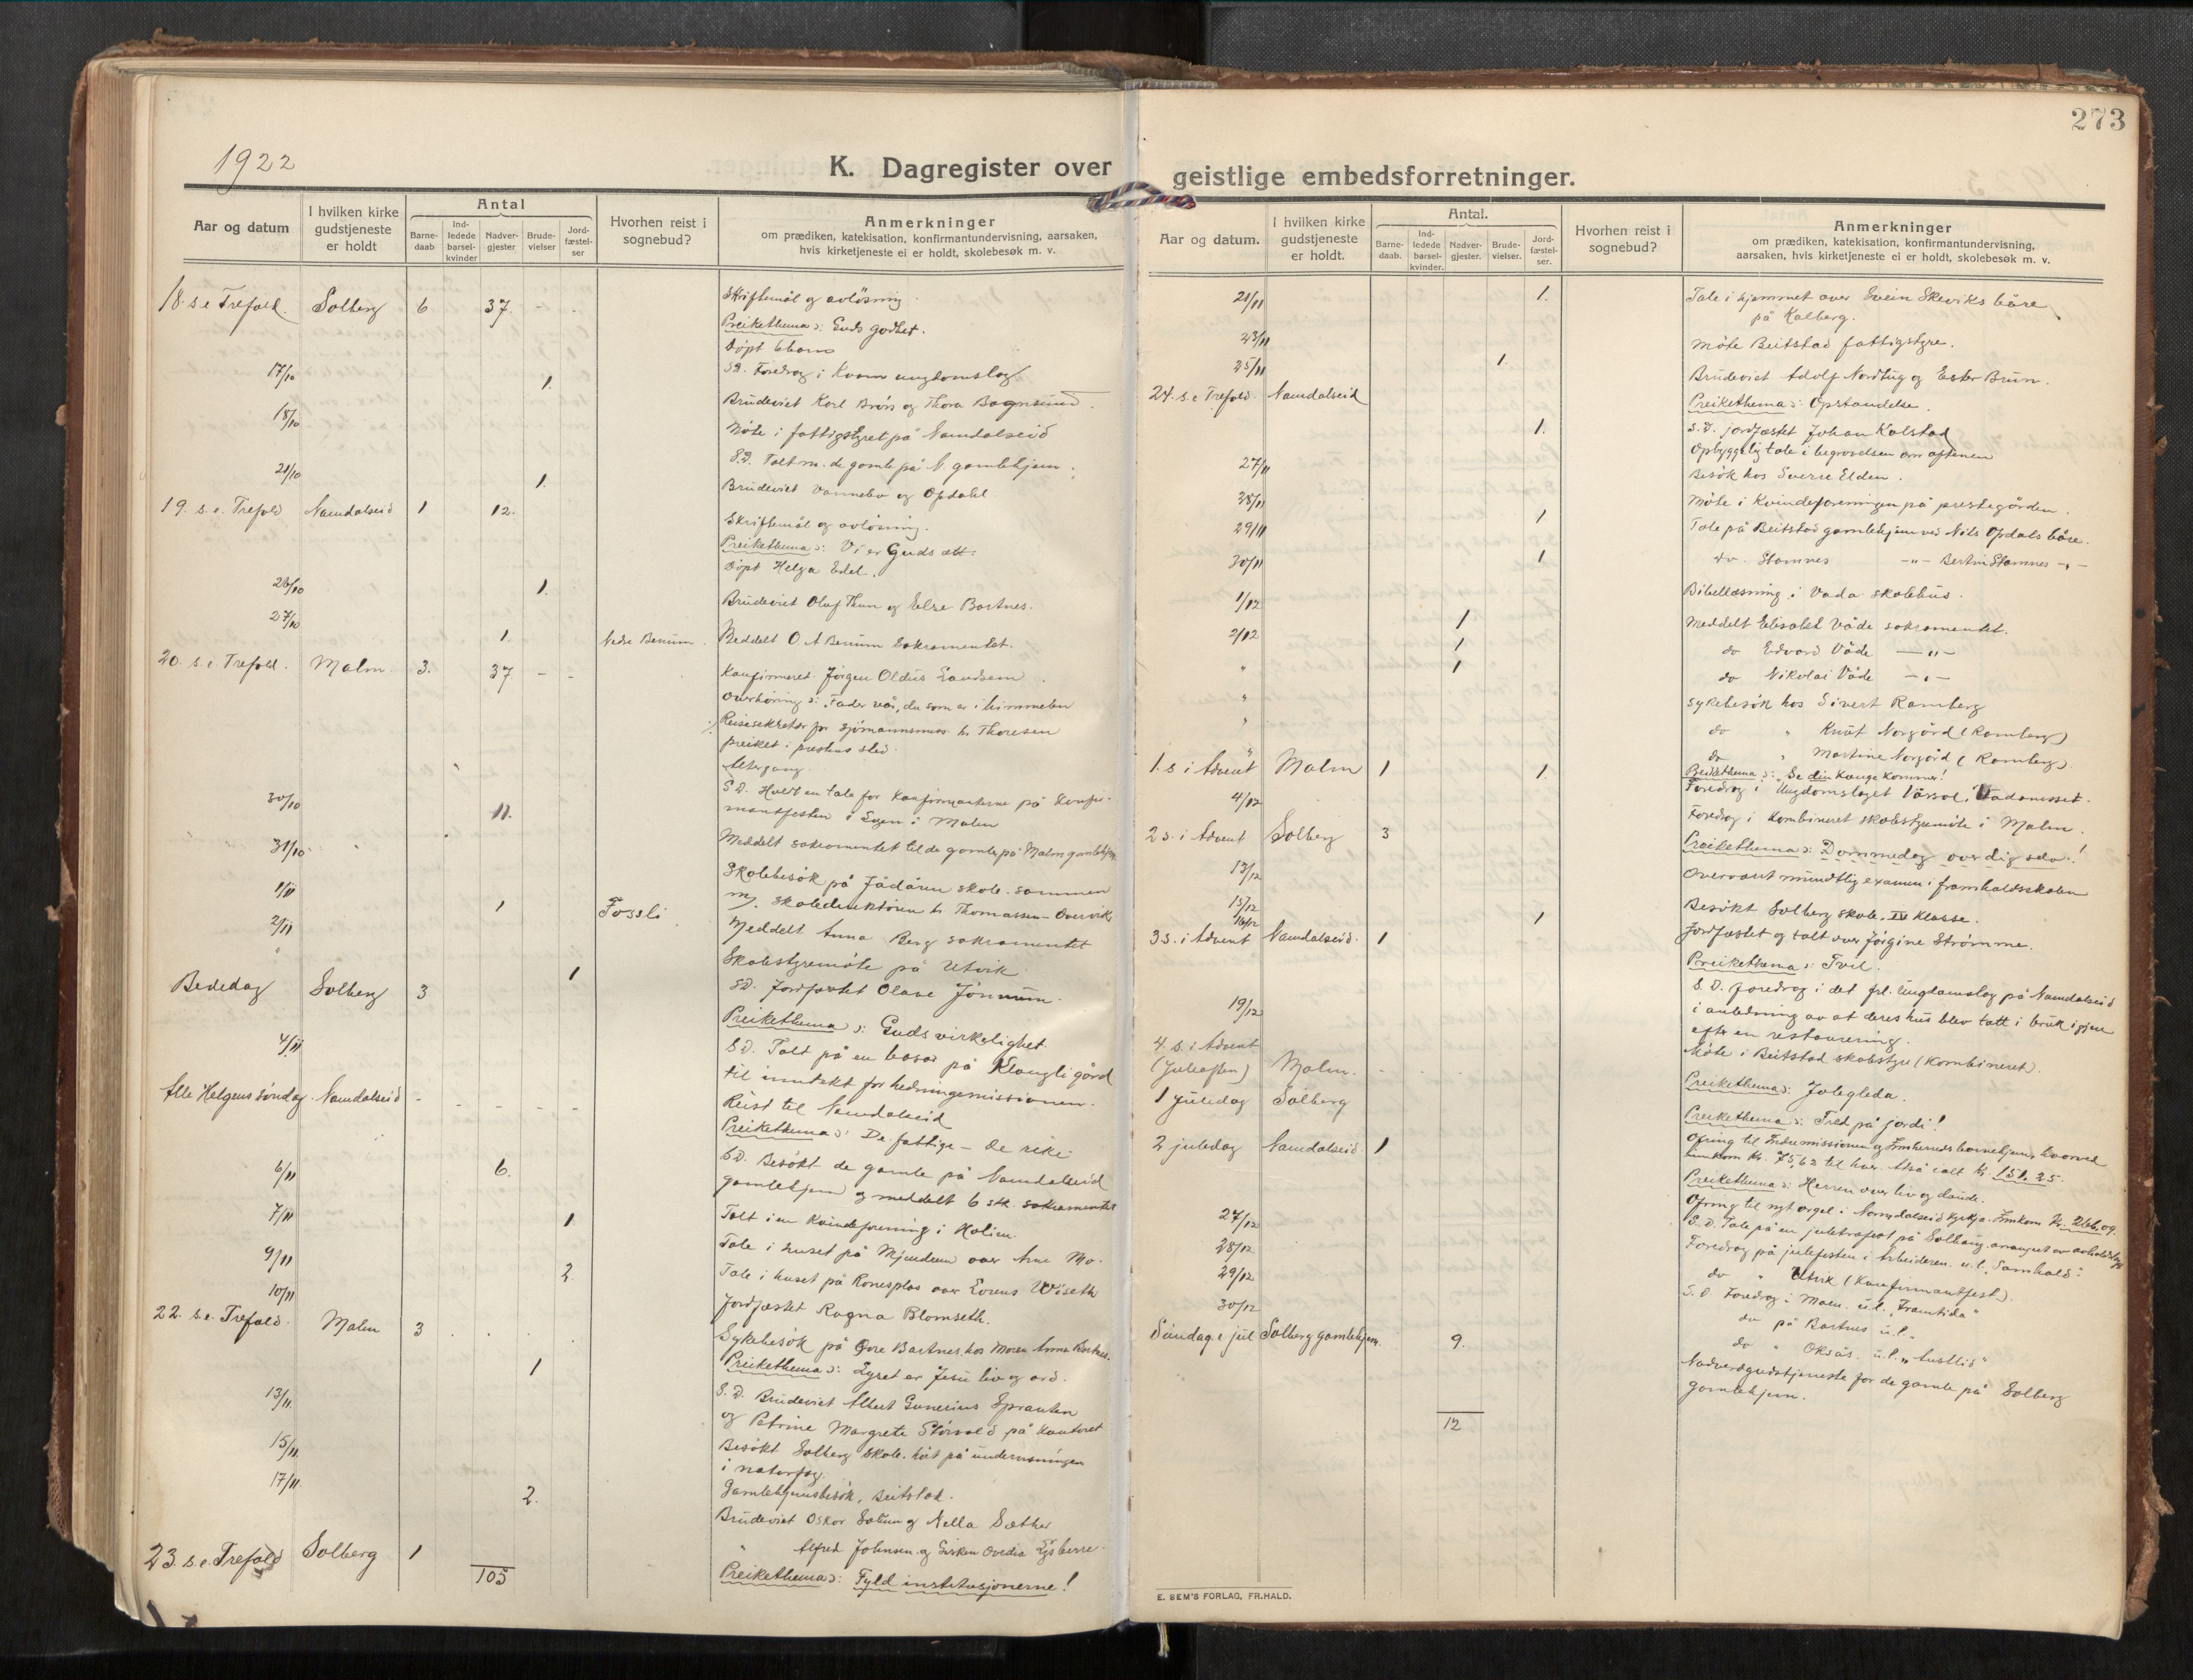 1922
K. Dagregister over
Aar og datum
I hvilken kirke gudstjeneste er holdt
Antal
Barne-daab
Ind-ledede barsel-kvinder
Nadver-gjester
Brude-vielser
Jord-fæstel-ser
Hvorhen reist i sognebud?
Anmerkninger
om prædiken, katekisation, konfirmantundervisning, aarsaken,
hvis kirketjeneste ei er holdt, skolebesøk m. v.
18. s e Trefold. Solberg 6 37. - - Skriftemål og avlösning.
Preikethema ɔ: Guds godhet.
Döpt 6 barn
S.D. Foredrag i Kvam ungdomslag
17/10 1. Brudeviet Karl Brörs og Thora
18/10 Möte i fattigstyret på Namdalseid
S.D. Talt m. de gamle på N. gamlehjem.
21/10 1. Brudeviet og Opdahl
19. s. e. Trefold Namdalseid 1 12. Skriftemål og avlösning.
Preikethema ɔ: Vi er Guds ætt.
Döpt Helga Edel.
26/10 1. Brudeviet Oluf Thun og Else Bartnes.
27/10 1. Nedre Benum. Meddelt O. A Benum Sakramentet.
20. s. e Trefold. Malm. 3. 37 - - Konfirmeret Jörgen Oldus
Overhöring ɔ: Fader vår, du som er i himmelen
Reisesekretær for sjömannsmis. hr. Thoresen
preiket i prestens sted.
Altergang.
S.D. Holdt en tale for konfirmanterne på Konfir-
mantfesten i i Malm
30/10 11. Meddelt sakramentet til de gamle på Malm gamlehjem.
31/10 Skolebesök på Jådåren skole sammen
m. skoledirektören hr. Thomassen
1/11 1 Fossli Meddelt Anna Berg sakramentet
2/11 Skolestyremöte på Utvik
" 1 S.D. Jordfæstet Olave Jönnum.
Bededag Solberg 3 Preikethema ɔ: Guds virkelighet.
S.D. Talt på en basar på gård
til inntekt for hedningemissionen.
4/11 Reist til Namdalseid
Alle Helgens söndag. Namdalseid - - - - - Preikethema ɔ: De fattige - de rike
S.D. Besökt de gamle på Namdalseid
gamlehjem og meddelt 6 stk. sakramentet
6/11 6. Talt i en Kvindeforening i
7/11 1 Tale i huset på over Arne Mo.
9/11 2. Tale i huset på over Lorens Wiseth
Jordfæstet Ragna Blomseth.
10/11 Sykebesök på Bartnes, hos Moren Anna Bartnes.
22. s. e. Trefold. Malm 3 . . . . Preikethema ɔ: Lyset er Jesu liv og ord.
1 S.D. Brudeviet Albert Gunerius
og Petrine Margrete på kontoret
13/11 Besökt Solberg skole. hört på undervisningen
i naturfag.
15/11 Gamlehjemsbesök, Beitstad.
17/11 2. Brudeviet Oskar og Nella Sæther
" Alfred Johnsen og Ovedia
23. s. e Trefold Solberg 1 Preikethema ɔ: Fyld institusjonerne!
105
273
geistlige embedsforretninger.
Aar og datum.
I hvilken kirke gudstjeneste er holdt.
Antal.
Barne-daab.
Ind-ledede barsel-kvinder.
Nadver-gjester.
Brude-vielser.
Jord-fæstel-ser.
Hvorhen reist i sognebud?
Anmerkninger
om prædiken, katekisation, konfirmantundervisning,
aarsaken, hvis kirketjeneste ei er holdt, skolebesøk m. v.
21/11 1. Tale i hjemmet over Skeviks båre
på Kalberg.
23/11 Möte Beitstad fattigstyre.
25/11 1. Brudeviet Adolf Nordtug og Ester Brun.
24. s. e Trefold. Namdalseid Preikethema ɔ: Opstandelse.
1. S.D. jordfæstet Johan Kalstad
Opbyggelig tale i begravelsen om aftenen
27/11 Besök hos Sverre Elden.
28/11 Möte i Kvindeforeningen på prestegården.
29/11 1 Tale på Beitstad gamlehjem ved Nils Opdals båre.
30/11 1 do. Stamnes -"- Stamnes -"-
1/12 Bibellæsning i Vada skolehus.
2/12 1 Meddelt Elisabet Våde sakramentet.
1 do Edvard Våde -"-
" 1 do Nikolai Våde -"-
" Sykebesök hos Sivert Ramberg
" do " Knut Norgård (Ramberg)
" do " Martine Norgård (Ramberg)
1. s i Advent Malm 1 1. Preikethema ɔ: Se din Konge kommer!
Foredrag i Ungdomslaget Vårsol,
4/12 Foredrag i kombineret skolestyremöte i Malm.
2 s. i Advent Solberg 3 Preikethema ɔ: Dommedag over dig selv!
13/12 Overvært mundtlig examen i framhaldsskolen
15/12 Besökt Solberg skole. IV Klasse.
16/12 1 Jordfæstet og talt over Jörgine Strömme.
3 s. i Advent Namdalseid. 1 Preikethema ɔ: Tvil.
S. D. foredrag i det frl. Ungdomslag på Namdalseid
i anledning av at deres hus blev tatt i bruk igjen
efter en restaurering.
19/12 Möte i Beitstad skolestyre (Kombineret).
4. s. i Advent
(Juleaften) Malm. Preikethema ɔ: Joleglede.
1 Juledag Solberg Preikethema ɔ: Fred på jordi!
Ofring til Indremissionen og barnehjem, hvorved
innkom kr. 75,62 til hver. Altså ialt kr. 151.25.
2 juledag Namdalseid. 1 Preikethema ɔ: Herren over liv og daude.
Ofring til nyt orgel i Namdalseid kyrkja. Innkom kr.
S.D. Tale på en juletrefest på Solhaug, arrangert av avholdslag
27/12 Foredrag på julefesten i Arbeideren. u.l. "Samhald".
28/12 do " Utvik (Konfirmantfest).
29/12 S.D Foredrag i Malm. u.l. Framtida"
30/12 do på Bartnes u.l.
do " Oksås. u.l.
Söndag e jul Solberg gamlehjem. 9. Nadverdgudstjeneste for de gamle på Solberg
gamlehjem.
12
E. SEM'S FORLAG, FR.HALD.